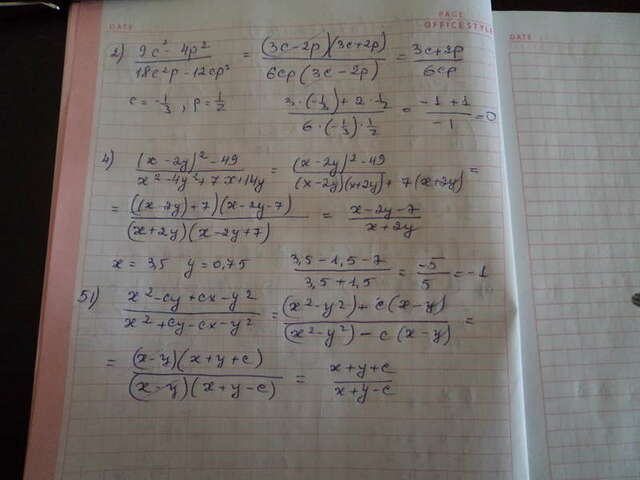 DATE
PAGE
OFFICE STYLE
DATE
2) (9c² - 4p²)/(18c²p - 12cp²) = ((3c-2p)(3c+2p))/(6cp(3c-2p)) = (3c+2p)/(6cp)
c = -1/3, p = 1/2 (3·(-1/3) + 2·1/2)/(6·(-1/3)·1/2) = (-1+1)/(-1) = 0
4) ((x-2y)² - 49)/(x² - 4y² + 7x + 14y) = ((x-2y)² - 49)/((x-2y)(x+2y) + 7(x+2y)) =
= ((x-2y)+7)(x-2y-7)/((x+2y)(x-2y+7)) = (x-2y-7)/(x+2y)
x = 3,5 y = 0,75 (3,5-1,5-7)/(3,5+1,5) = -5/5 = -1
51) (x² - cy + cx - y²)/(x² + cy - cx - y²) = ((x²-y²) + c(x-y))/((x²-y²) - c(x-y)) =
= ((x-y)(x+y+c))/((x-y)(x+y-c)) = (x+y+c)/(x+y-c)